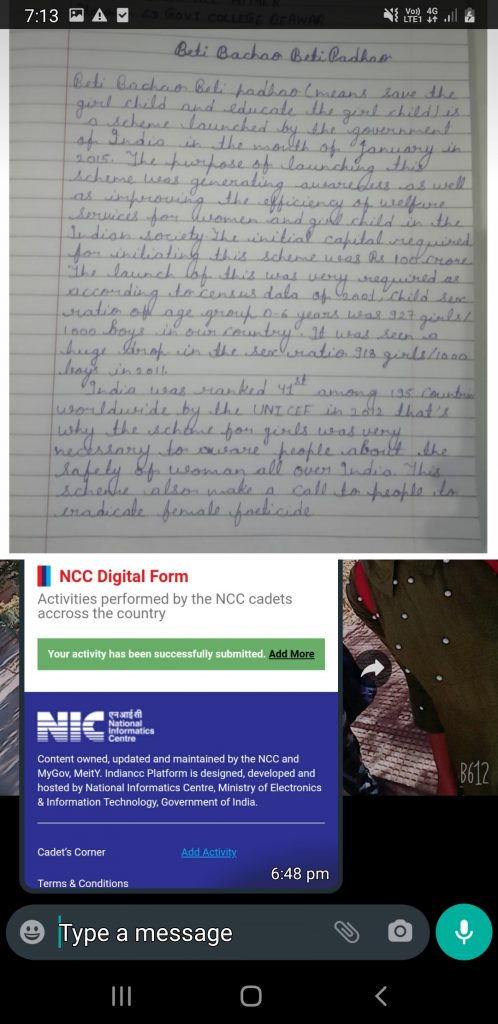 7:13
Vo) 4G
LTE1
GOVT COLLEGE BEAWAR
Beti Bachao Beti Padhao
Beti Bachao Beti padhao (means save the
girl child and educate the girl child) is
a scheme launched by the government
of India in the month of January in
2015. The purpose of launching this
scheme was generating awareness as well
as improving the efficiency of welfare
services for women and girl child in the
Indian society The initial capital required
for initiating this scheme was Rs 100 crore
The launch of this was very required as
according to census data of 2001, child sex
ratio of age group 0-6 years was 927 girls/
1000 boys in our country. It was seen a
huge drop in the sex ratio 918 girls/1000
boys in 2011.
India was ranked 41st among 195 countri
worldwide by the UNICEF in 2012 that's
why the scheme for girls was very
necessary to aware people about the
safety of woman all over India. This
scheme also make a call to people to
eradicate female foeticide
NCC Digital Form
Activities performed by the NCC cadets
accross the country
Your activity has been successfully submitted. Add More
NIC एन आई सी
National
Informatics
Centre
Content owned, updated and maintained by the NCC and
MyGov, MeitY. Indiancc Platform is designed, developed and
hosted by National Informatics Centre, Ministry of Electronics
& Information Technology, Government of India.
Cadet's Corner Add Activity
6:48 pm
Terms & Conditions
B612
Type a message